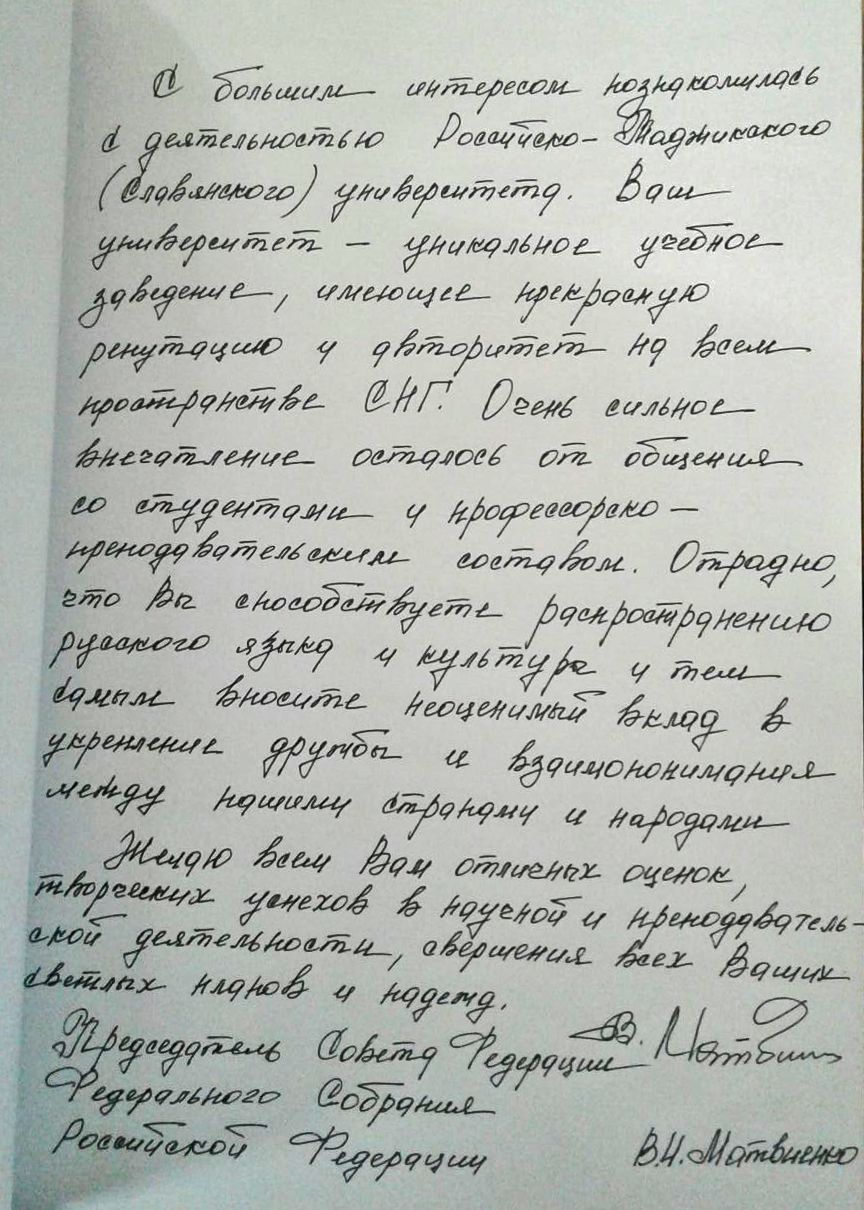 С большим интересом познакомилась
с деятельностью Российско-Таджикского
(Славянского) университета. Ваш
университет – уникальное учебное
заведение, имеющее прекрасную
репутацию и авторитет на всем
пространстве СНГ. Очень сильное
впечатление осталось от общения
со студентами и профессорско –
преподавательским составом. Отрадно,
что Вы способствуете распространению
русского языка и культуры и тем
самым вносите неоценимый вклад в
укрепление дружбы и взаимопонимания
между нашими странами и народами
Желаю всем Вам отличных оценок,
творческих успехов в научной и преподаватель-
ской деятельности, свершения всех Ваших
светлых планов и надежд.
Председатель Совета Федерации В. Матвиенко
Федерального Собрания
Российской Федерации В.И. Матвиенко